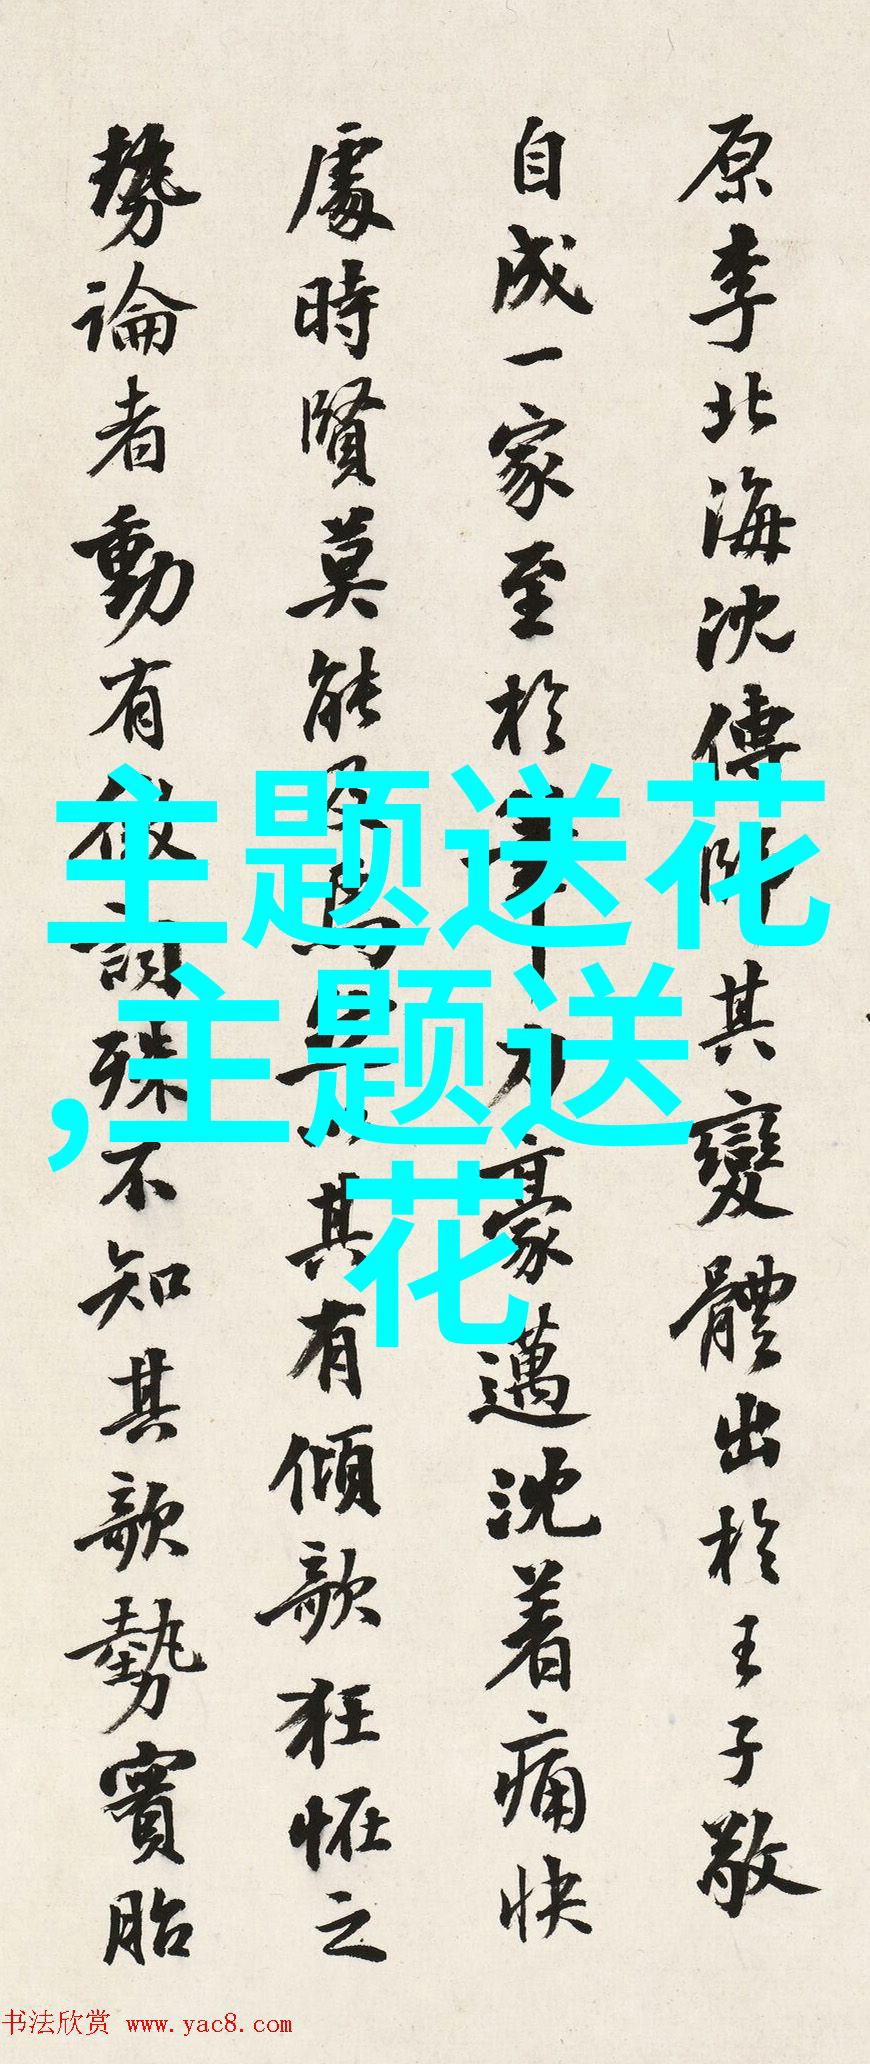 原李北海沈傳師其變體出於王子敬
自成一家至於筆力豪邁沈着痛快
處時賢莫能及焉以其有傾欹狂怪之
勢論者動有微詞殊不知其欹勢實胎
主题送花
,主题送
花
书法欣赏 www.yac8.com